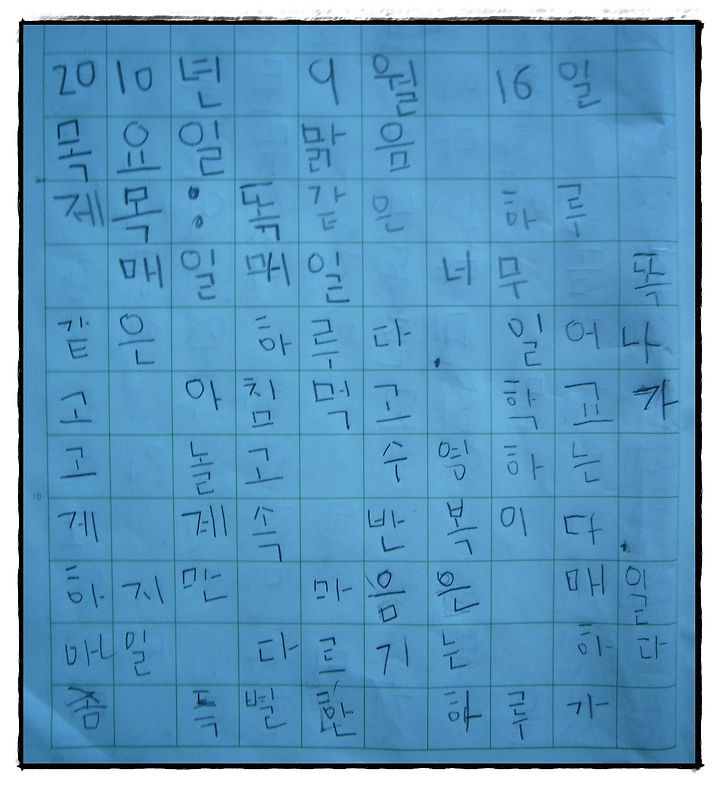 2010년 9월 16일
목요일 맑음
제목: 똑같은 하루
매일매일 너무 똑
같은 하루다. 일어나
고 아침먹고 학교가
고 놀고 수영하는
게 계속 반복이다.
하지만 마음은 매일
매일 다르기는 하다
쫌 특별한 하루가